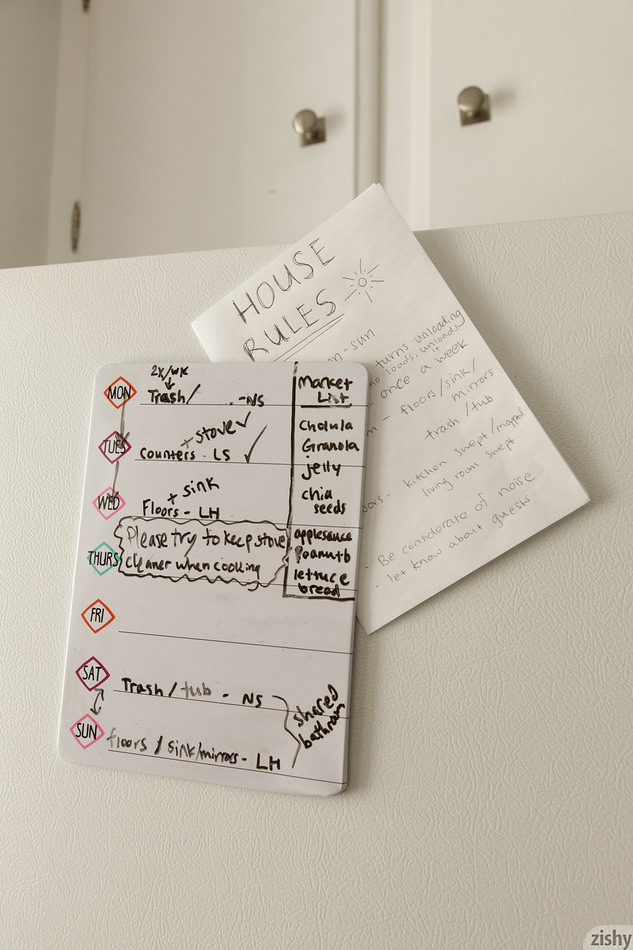 HOUSE
RULES
n-sun
turns unloading
no loads, unloads
it
once a week
m - floors/sink/
mirrors
trash/tub
oors - kitchen swept/mopped
living room swept
- Be considerate of noise
- let know about guests
2x/wk
MON
Trash/ . -NS
TUES
+ stove ✓
Counters - LS ✓
WED
+ sink
Floors - LH
THURS
Please try to keep stove
cleaner when cooking
FRI
SAT
Trash / tub - NS
SUN
floors / sink/mirrors - LH
shared
bathroom
Market
List
Cholula
Granola
jelly
chia
seeds
applesauce
Peanutb
lettuce
bread
zishy